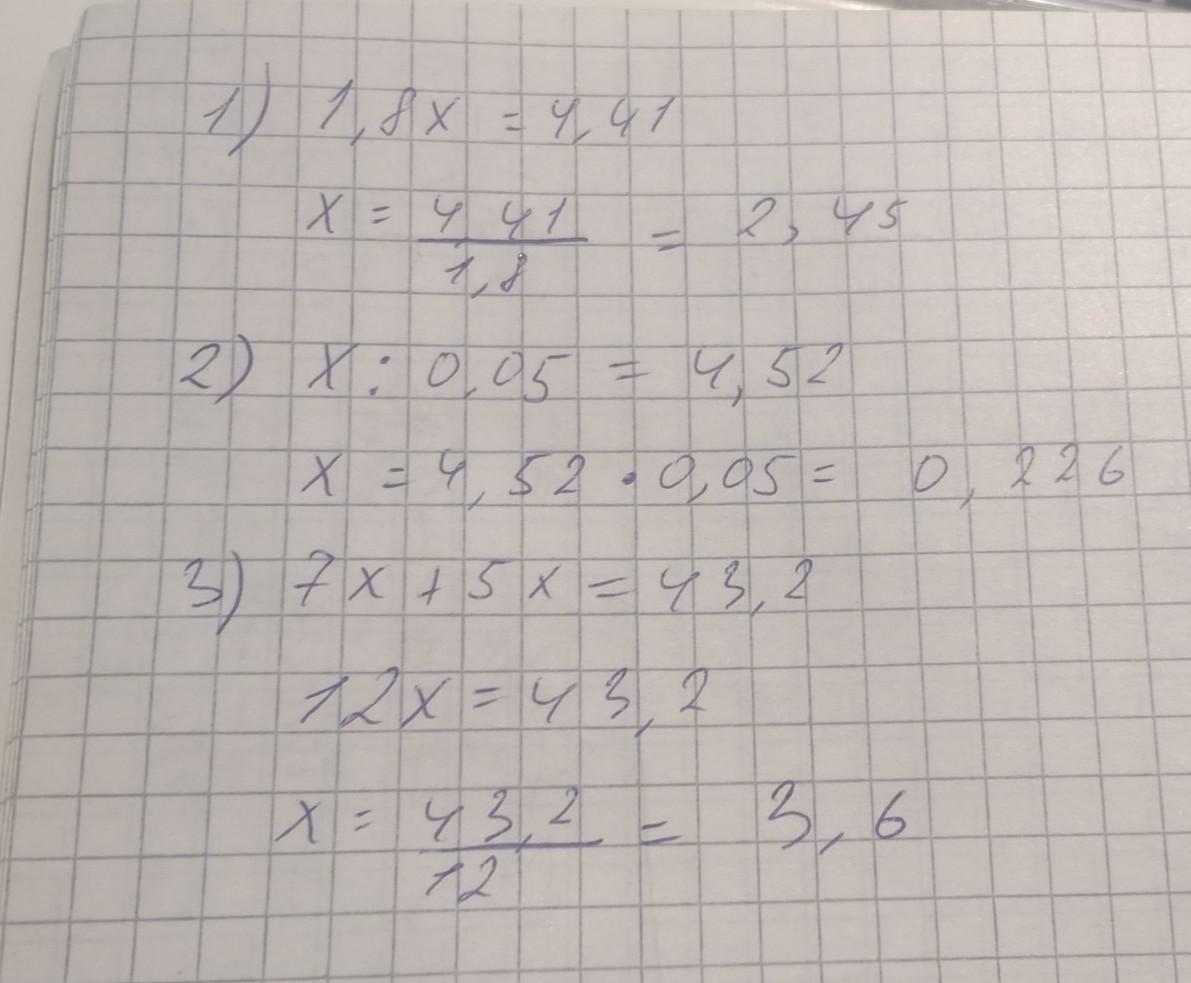 1) 1,8x = 4,41
x = 4,41 / 1,8 = 2,45
2) x : 0,05 = 4,52
x = 4,52 · 0,05 = 0,226
3) 7x + 5x = 43,2
12x = 43,2
x = 43,2 / 12 = 3,6